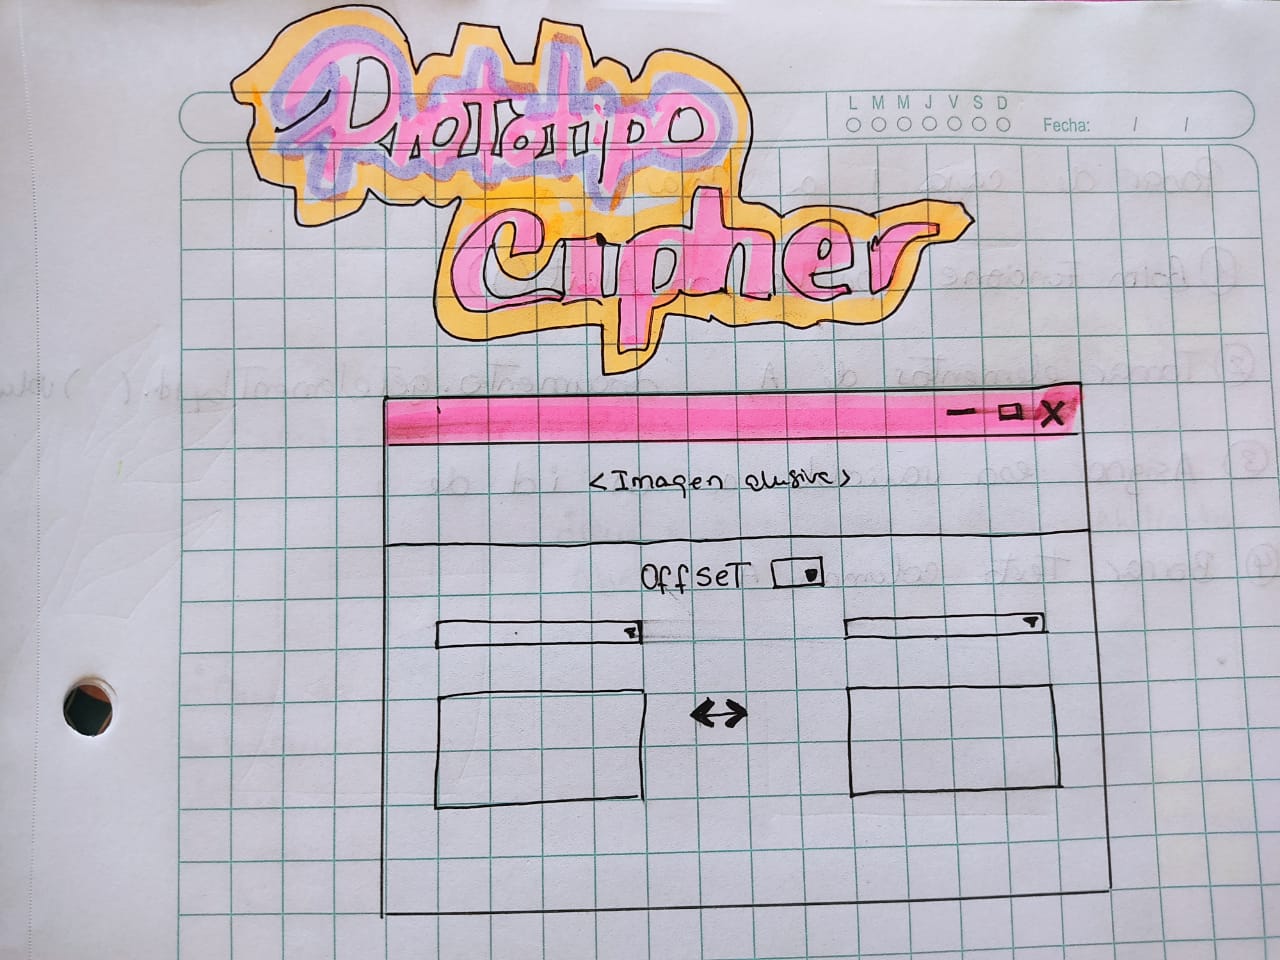 Prototipo
cipher
L M M J V S D
Fecha: / /
X
<Imagen alusiva>
OffseT